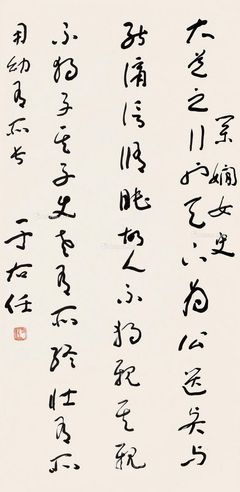 嫻女史
大道之行也天下為公選賢與
能講信脩睦故人不獨親其親
不獨子其子使老有所終壯有所
用幼有所長 于右任